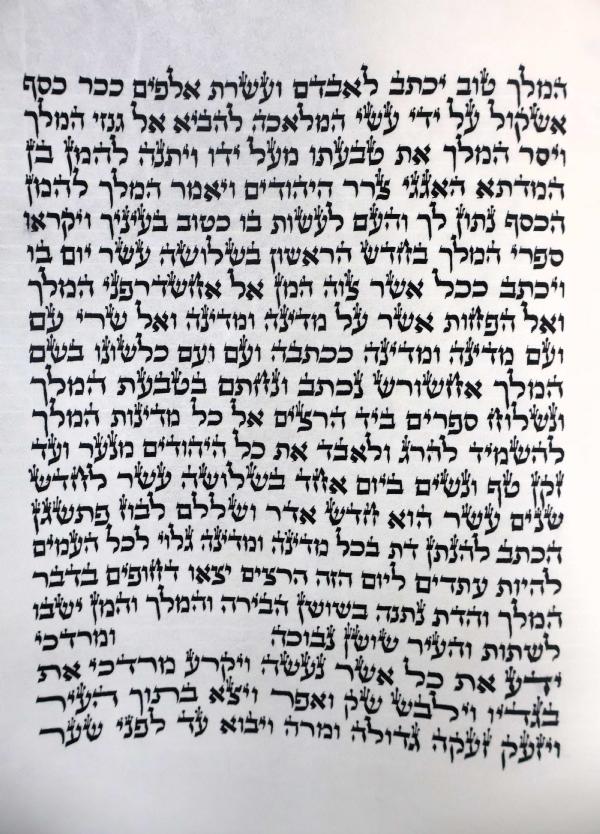 המלך טוב יכתב לאבדם ועשרת אלפים ככר כסף
אשקול על ידי עשי המלאכה להביא אל גנזי המלך
ויסר המלך את טבעתו מעל ידו ויתנה להמן בן
המדתא האגגי צרר היהודים ויאמר המלך להמן
הכסף נתון לך והעם לעשות בו כטוב בעיניך ויקראו
ספרי המלך בחדש הראשון בשלושה עשר יום בו
ויכתב ככל אשר צוה המן אל אחשדרפני המלך
ואל הפחות אשר על מדינה ומדינה ואל שרי עם
ועם מדינה ומדינה ככתבה ועם ועם כלשונו בשם
המלך אחשורש נכתב ונחתם בטבעת המלך
ונשלוח ספרים ביד הרצים אל כל מדינות המלך
להשמיד להרג ולאבד את כל היהודים מנער ועד
זקן טף ונשים ביום אחד בשלושה עשר לחדש
שנים עשר הוא חדש אדר ושללם לבוז פתשגן
הכתב להנתן דת בכל מדינה ומדינה גלוי לכל העמים
להיות עתדים ליום הזה הרצים יצאו דחופים בדבר
המלך והדת נתנה בשושן הבירה והמלך והמן ישבו
לשתות והעיר שושן נבוכה ומרדכי
ידע את כל אשר נעשה ויקרע מרדכי את
בגדיו וילבש שק ואפר ויצא בתוך העיר
ויזעק זעקה גדולה ומרה ויבוא עד לפני שער